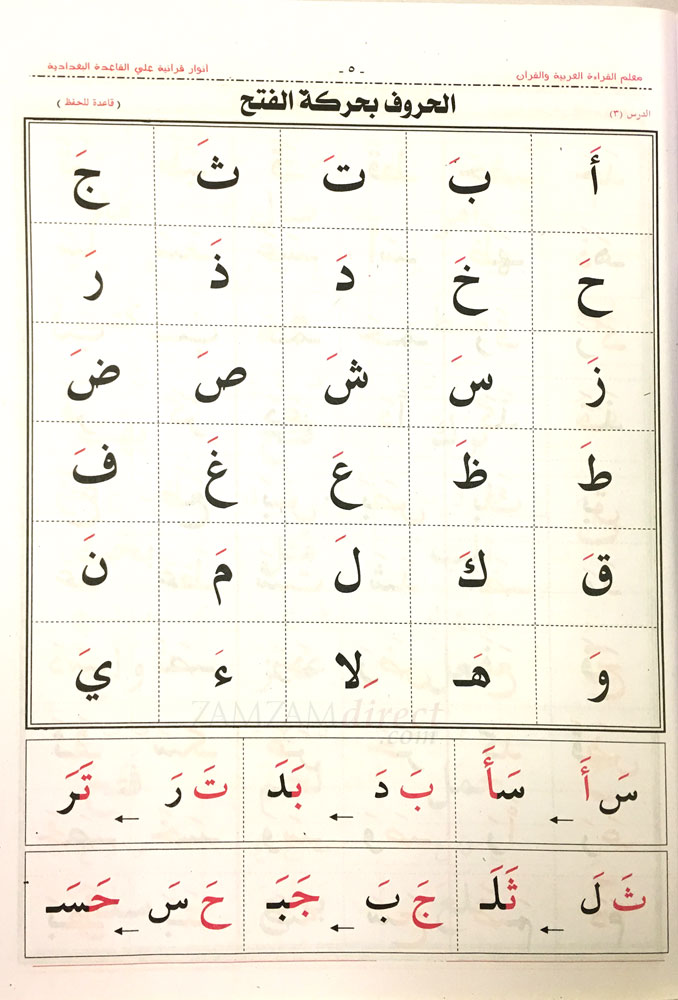 معلم القراءة العربية والقرآن - ٥ - انوار قرآنية على القاعدة البغدادية
الدرس (٣) الحروف بحركة الفتح ( قاعدة للحفظ )
أَ بَ تَ ثَ جَ
حَ خَ دَ ذَ رَ
زَ سَ شَ صَ ضَ
طَ ظَ عَ غَ فَ
قَ كَ لَ مَ نَ
وَ هَـ لِا ءَ يَ
ZAMZAMdirect
.com
سَ أَ ← سَأَ بَ دَ ← بَدَ تَ رَ ← تَرَ
ثَ لَ ← ثَلَـ جَ بَ ← جَبَـ حَ سَ ← حَسَـ